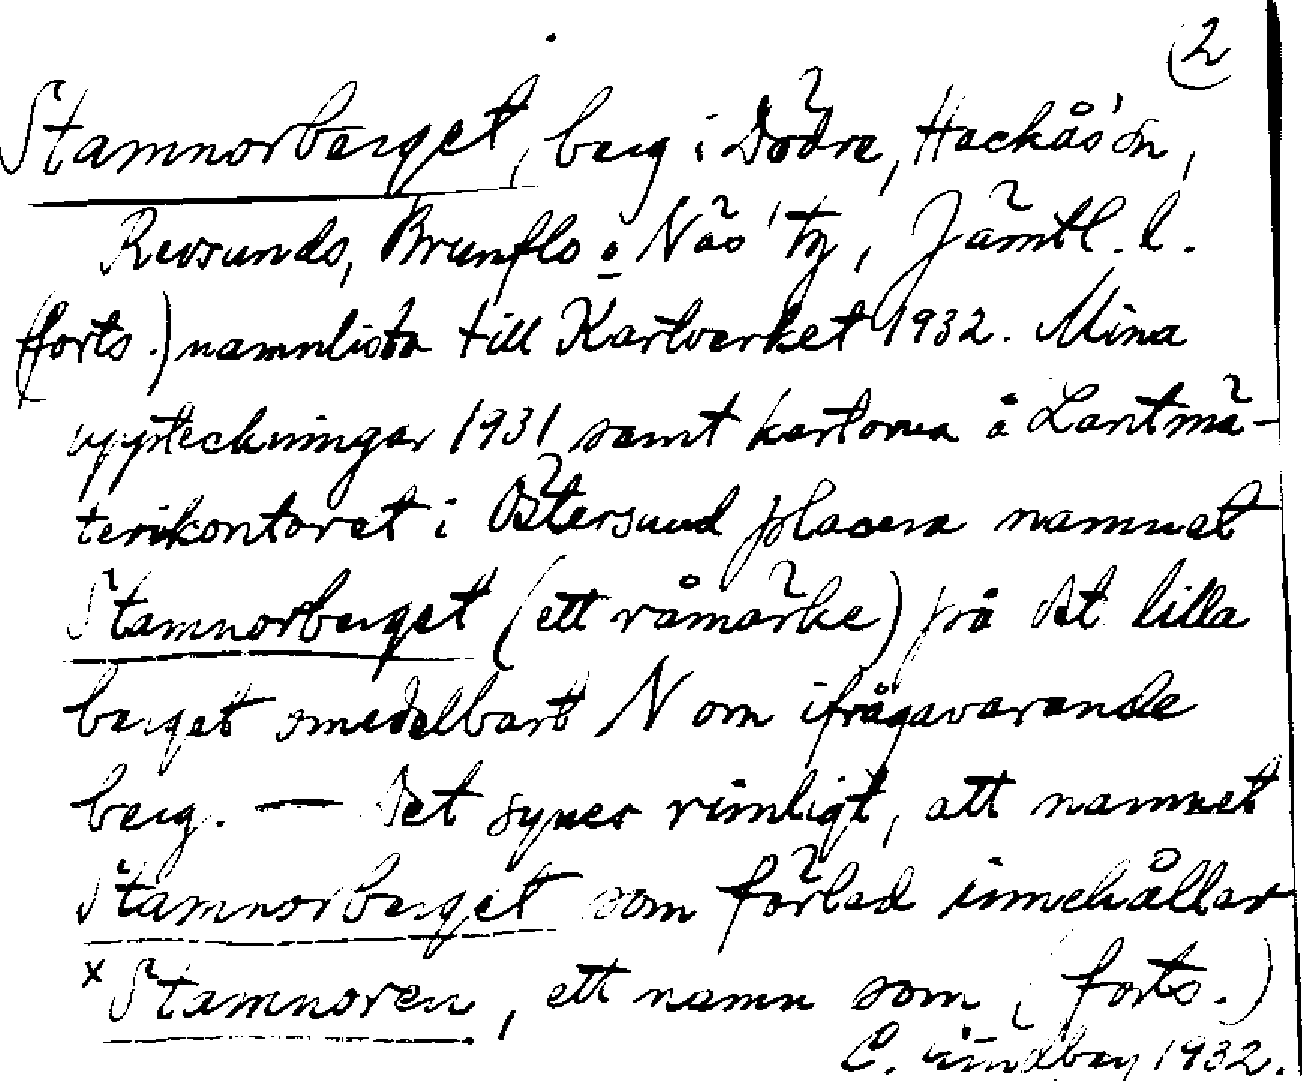 2
Stamnorberget, berg i Dödre, Hackås' sn,
Revsunds, Brunflo o Näs' tg, Jämtl. l.
(forts.) namnlista till Kartverket 1932. Mina
uppteckningar 1931 samt kartorna å Lantmä-
terikontoret i Östersund placera namnet
Stamnorberget (ett råmärke) på det lilla
berget omedelbart N om ifrågavarande
berg. — Det synes rimligt, att namnet
Stamnorberget som förled innehåller
×Stamnoren, ett namn som (forts.)
C. Lindberg 1932.